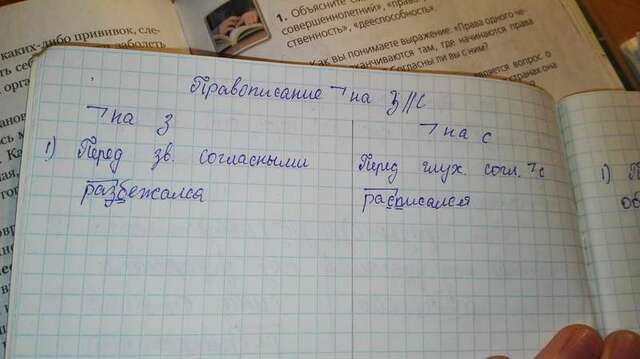 каких-либо прививок, сле-
1. Объясните
совершеннолетний», «
ственность», «дееспособность».
Как вы понимаете выражение: «Права одного че-
заканчиваются там, где начинаются права
Согласны ли вы с ним?
вопрос о
Правописание ¬ на З//С
¬ на З
1) Перед зв. согласными
разбежался
¬ на С
Перед глух. согл. ¬ с
расписался
1)